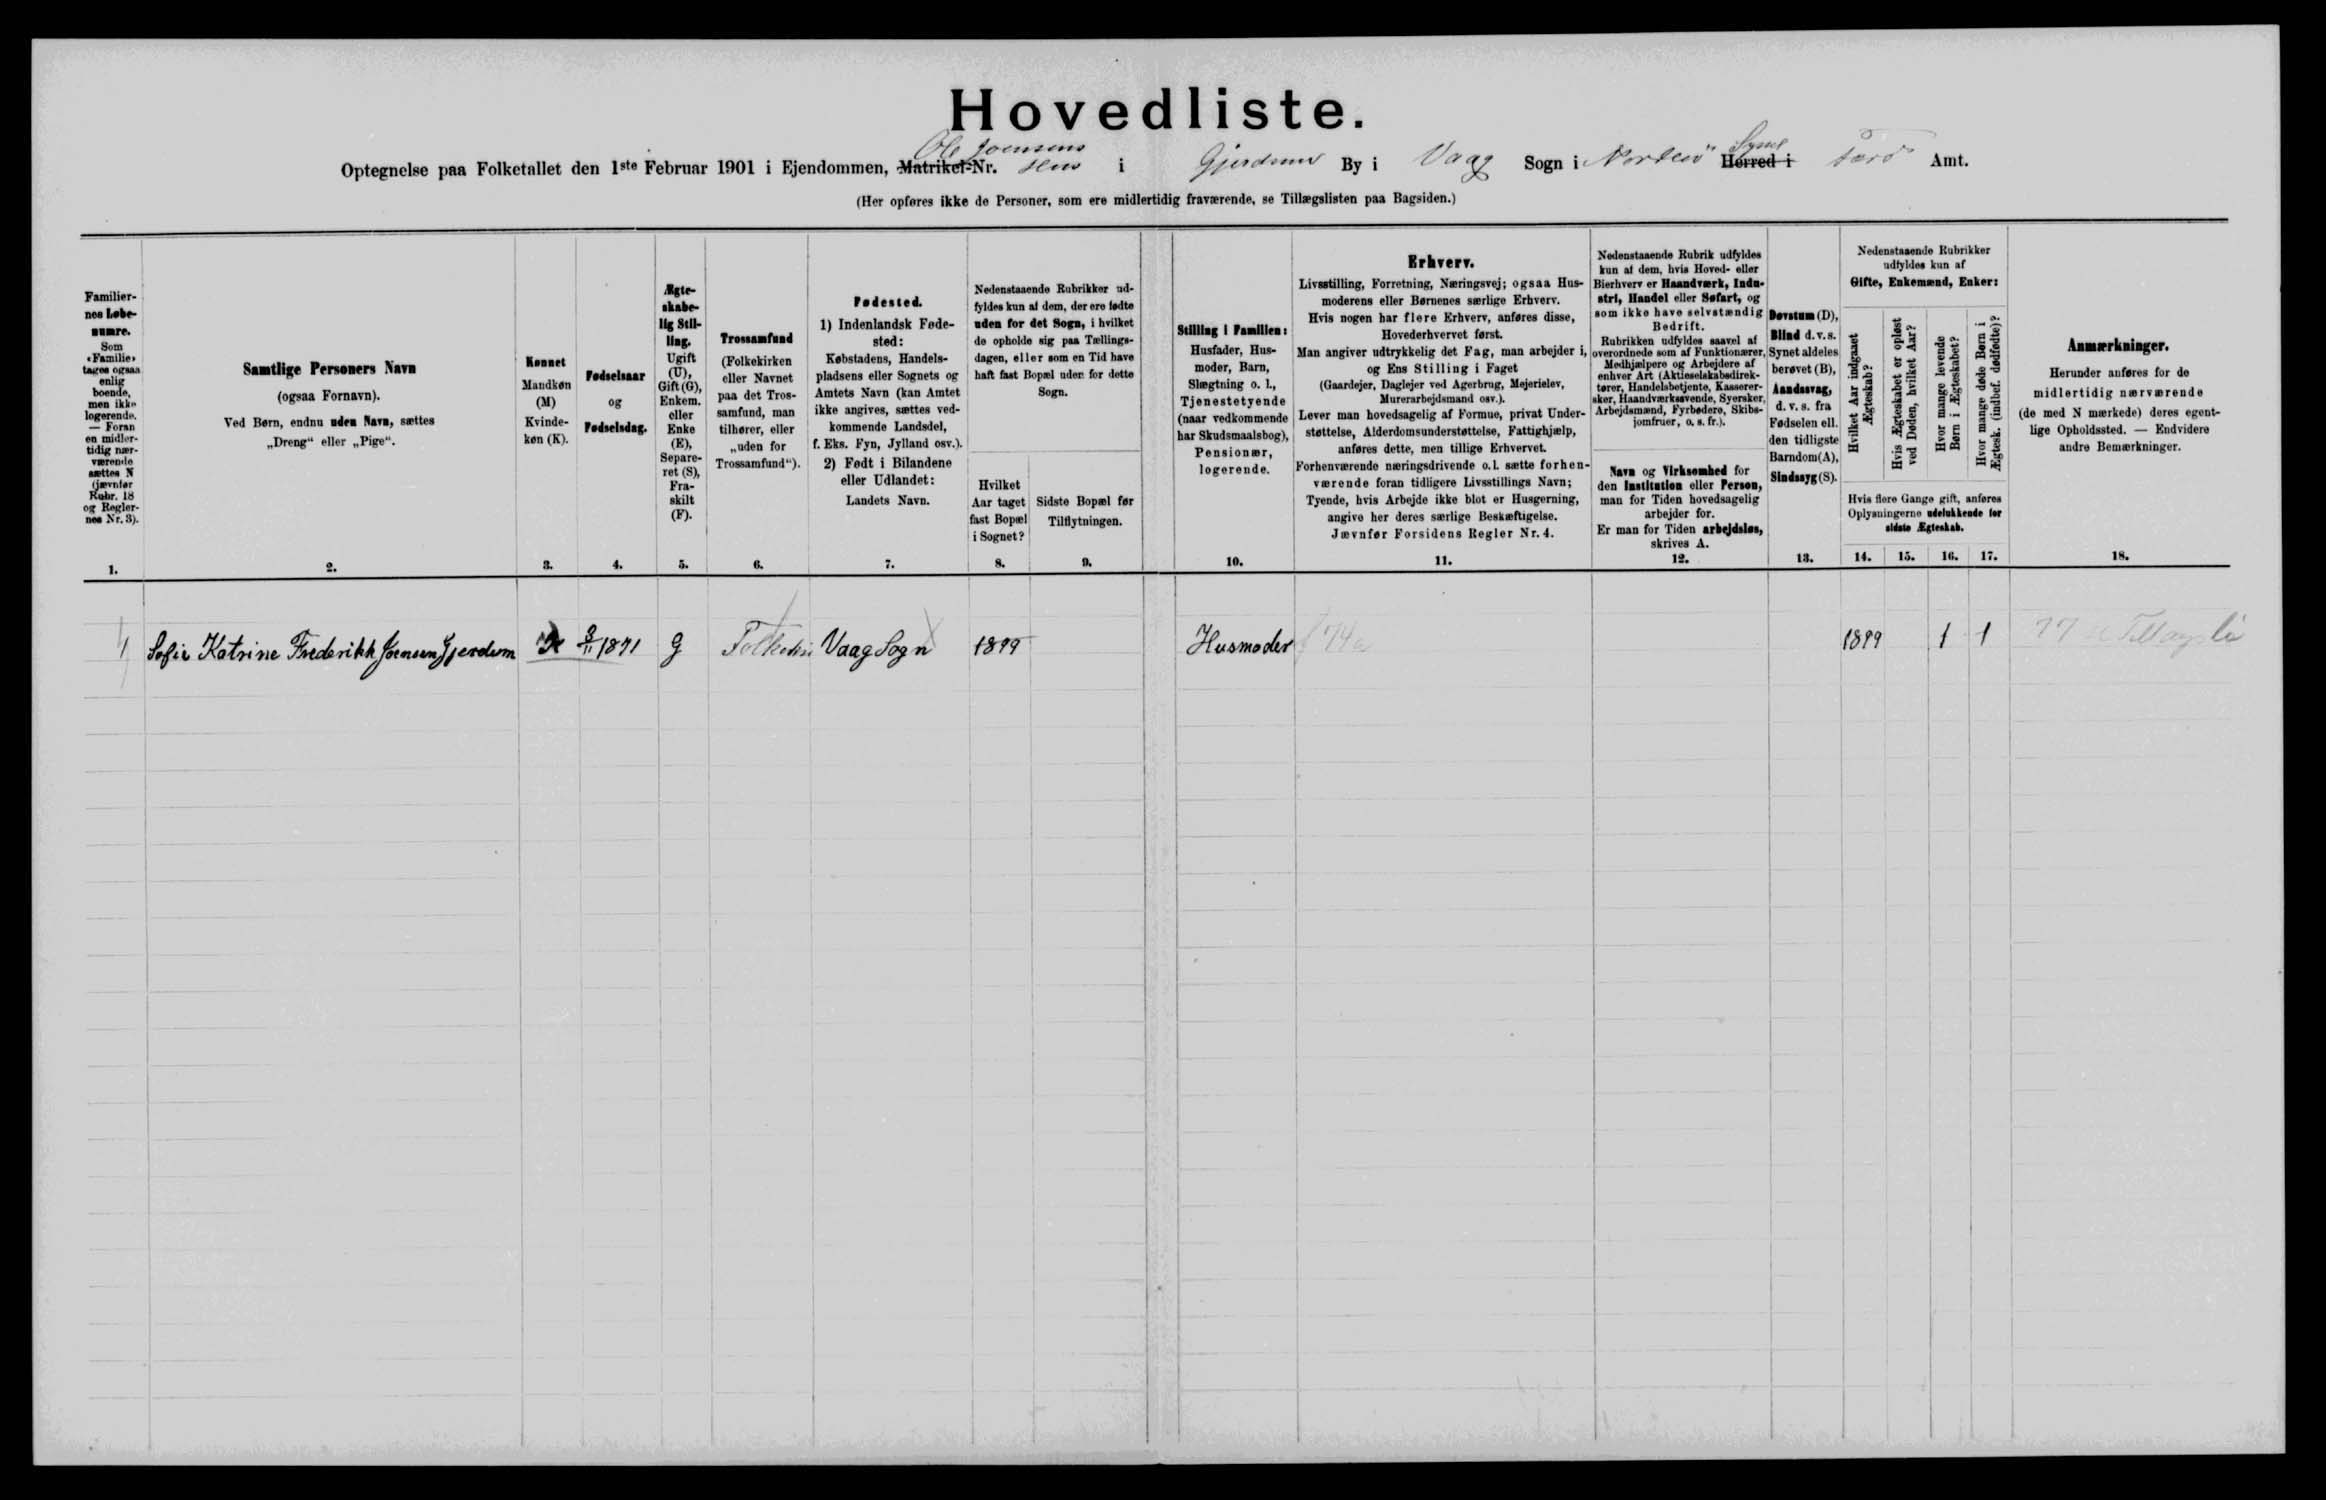 Hovedliste.
Ole Joensens Syssel
Optegnelse paa Folketallet den 1ste Februar 1901 i Ejendommen, Matrikel-Nr. Hus i Gjerdum By i Vaag Sogn i Norderö Herred i Færø Amt.
(Her opføres ikke de Personer, som ere midlertidig fraværende, se Tillægslisten paa Bagsiden.)
Familier-
nes Løbe-
numre.
Som
«Familie»
tages ogsaa
enlig
boende,
men ikke
logerende.
— Foran
en midler-
tidig nær-
værende
sættes N
(jævnfør
Rubr. 18
og Regler-
nes Nr. 3).
1.
Samtlige Personers Navn
(ogsaa Fornavn).
Ved Børn, endnu uden Navn, sættes
„Dreng“ eller „Pige“.
2.
Kønnet
Mandkøn
(M)
Kvinde-
køn (K).
3.
Fødselsaar
og
Fødselsdag.
4.
Ægte-
skabe-
lig Stil-
ling.
Ugift
(U),
Gift (G),
Enkem.
eller
Enke
(E),
Separe-
ret (S),
Fra-
skilt
(F).
5.
Trossamfund
(Folkekirken
eller Navnet
paa det Tros-
samfund, man
tilhører, eller
„uden for
Trossamfund“).
6.
Fødested.
1) Indenlandsk Føde-
sted:
Købstadens, Handels-
pladsens eller Sognets og
Amtets Navn (kan Amtet
ikke angives, sættes ved-
kommende Landsdel,
f. Eks. Fyn, Jylland osv.).
2) Født i Bilandene
eller Udlandet:
Landets Navn.
7.
Nedenstaaende Rubrikker ud-
fyldes kun af dem, der ere fødte
uden for det Sogn, i hvilket
de opholde sig paa Tællings-
dagen, eller som en Tid have
haft fast Bopæl uden for dette
Sogn.
Hvilket
Aar taget
fast Bopæl
i Sognet?
8.
Sidste Bopæl før
Tilflytningen.
9.
Stilling i Familien:
Husfader, Hus-
moder, Barn,
Slægtning o. l.,
Tjenestetyende
(naar vedkommende
har Skudsmaalsbog),
Pensionær,
logerende.
10.
Erhverv.
Livsstilling, Forretning, Næringsvej; ogsaa Hus-
moderens eller Børnenes særlige Erhverv.
Hvis nogen har flere Erhverv, anføres disse,
Hovederhvervet først.
Man angiver udtrykkelig det Fag, man arbejder i,
og Ens Stilling i Faget
(Gaardejer, Daglejer ved Agerbrug, Mejerielev,
Murerarbejdsmand osv.).
Lever man hovedsagelig af Formue, privat Under-
støttelse, Alderdomsunderstøttelse, Fattighjælp,
anføres dette, men tillige Erhvervet.
Forhenværende næringsdrivende o. l. sætte forhen-
værende foran tidligere Livsstillings Navn;
Tyende, hvis Arbejde ikke blot er Husgerning,
angive her deres særlige Beskæftigelse.
Jævnfør Forsidens Regler Nr. 4.
11.
Nedenstaaende Rubrik udfyldes
kun af dem, hvis Hoved- eller
Bierhverv er Haandværk, Indu-
stri, Handel eller Søfart, og
som ikke have selvstændig
Bedrift.
Rubrikken udfyldes saavel af
overordnede som af Funktionærer,
Medhjælpere og Arbejdere af
enhver Art (Aktieselskabsdirek-
tører, Handelsbetjente, Kasserer-
sker, Haandværkssvende, Syersker,
Arbejdsmænd, Fyrbødere, Skibs-
jomfruer, o. s. fr.).
Navn og Virksomhed for
den Institution eller Person,
man for Tiden hovedsagelig
arbejder for.
Er man for Tiden arbejdsløs,
skrives A.
12.
Døvstum (D),
Blind d. v. s.
Synet aldeles
berøvet (B),
Aandssvag,
d. v. s. fra
Fødselen ell.
den tidligste
Barndom(A),
Sindssyg (S).
13.
Nedenstaaende Rubrikker
udfyldes kun af
Gifte, Enkemænd, Enker:
Hvilket Aar indgaaet
Ægteskab?
Hvis Ægteskabet er opløst
ved Døden, hvilket Aar?
Hvor mange levende
Børn i Ægteskabet?
Hvor mange døde Børn i
Ægtesk. (indbef. dødfødte)?
Hvis flere Gange gift, anføres
Oplysningerne udelukkende for
sidste Ægteskab.
14. 15. 16. 17.
Anmærkninger.
Herunder anføres for de
midlertidig nærværende
(de med N mærkede) deres egent-
lige Opholdssted. — Endvidere
andre Bemærkninger.
18.
1 Sofie Katrine Frederikk Joensen Gjerdum K 3/11 1871 G Folkekir Vaag Sogn 1899 Husmoder 74a 1899 1 1